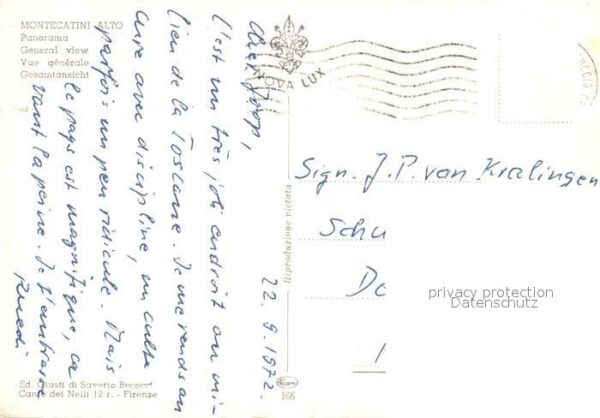 MONTECATINI ALTO
Panorama
General view
Vue générale
Gesamtansicht
NOVA LUX
22.9.1972.
Cher Joop,
C'est un très joli endroit au mi-
lieu de la Toscane. Je me rends au
cure avec discipline, un culte
parfois un peu ridicule. Mais
le pays est magnifique, ca
vaut la peine. Je t'
Ruedi
Sign. J.P. van Kralingen
Schu
Do
privacy protection
Datenschutz
Riproduzione vietata
Ed. Giusti di Saverio
Canto dei Nelli 12 r. - Firenze
166